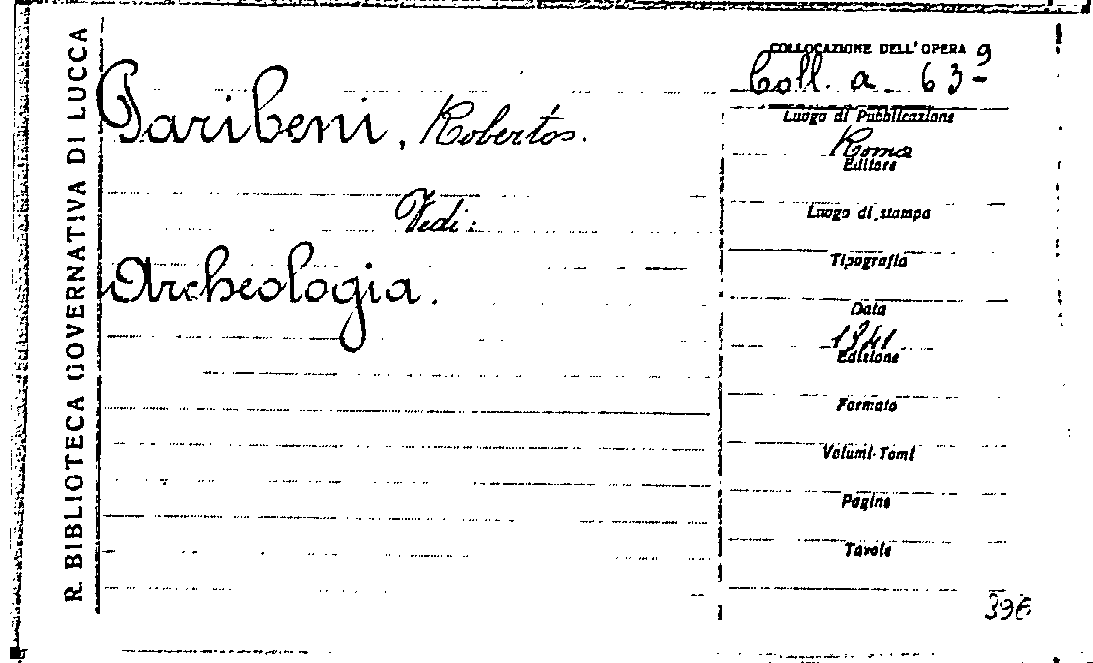 R. BIBLIOTECA GOVERNATIVA DI LUCCA
Paribeni, Roberto.
Vedi:
Archeologia.
COLLOCAZIONE DELL'OPERA
Coll. a. 63-9
Luogo di Pubblicazione
Roma
Editore
Luogo di stampa
Tipografia
Data
1941
Edizione
Formato
Volumi-Tomi
Pagine
Tavole
396